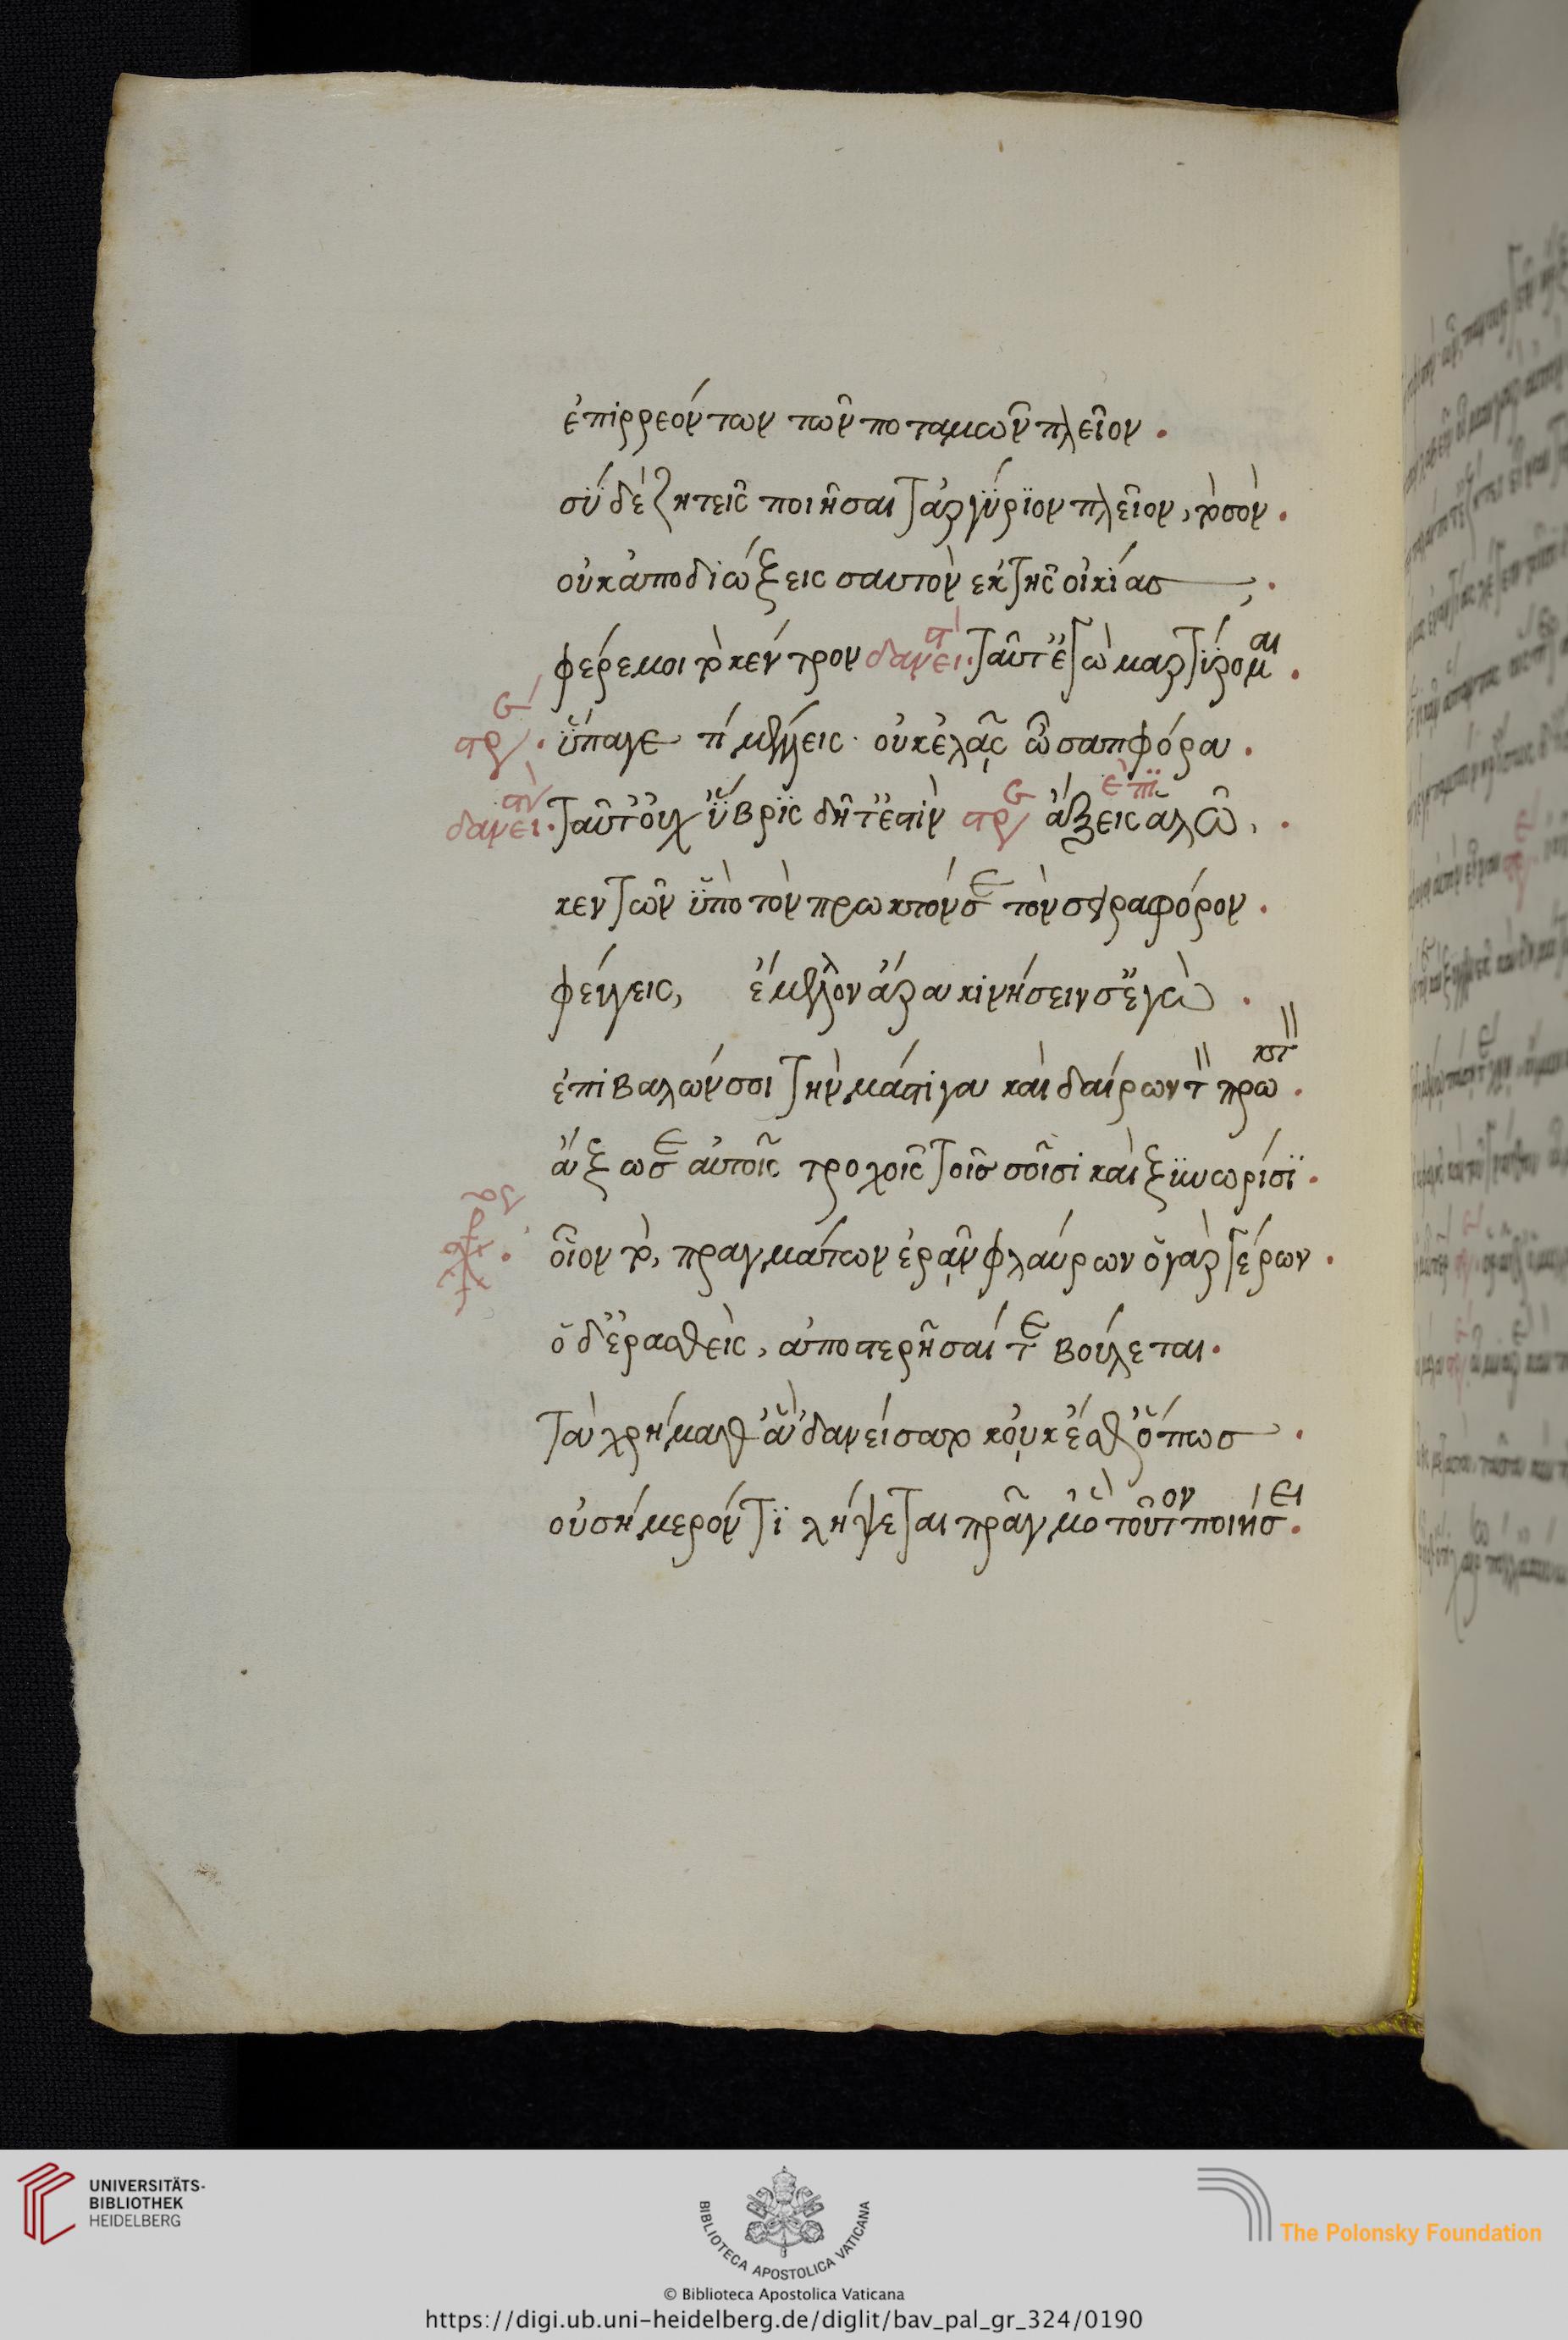 ἐπιρρεόντων τῶν ποταμῶν πλεῖον.
σὺ δὲ ζητεῖς ποιῆσαι τἀργύριον πλεῖον, τὸ σὸν.
οὐκ ἀποδιώξεις σαυτὸν ἐκ τῆς οἰκίας ;.
φέρε μοι τὸ κέντρον δανει. ταῦτ' ἐγὼ μαρτύρομαι.
στρ. ὕπαγε τί μέλλεις· οὐκ ἐλᾷς ὦ σαπφόρα.
δανει. ταῦτ' οὐχ ὕβρις δῆτ' ἐστὶν στρ ἄξεις ἐπιαλῶ.
κεντῶν ὑπὸ τὸν πρωκτόν σε τὸν σειραφόρον.
φεύγεις, ἔμελλον ἄρα κινήσειν σ' ἐγὼ.
ἐπιβαλών σοι τὴν μάστιγα καὶ δαίρων τ πρωκτ.
ἄξω σε αὐτοῖς τροχοῖς τοῖς σοῖσι καὶ ξυνωρίσι.
οἷον τὸ, πραγμάτων ἐρᾷν φλαύρων ὁ γὰρ γέρων.
ὁ δ' ἐρασθεὶς, ἀποστερῆσαί τε βούλεται.
τὰ χρήμαθ' ἃ δανείσατο κοὐκ ἔσθ' ὅπως.
οὐ σήμερόν τι λήψεται πρᾶγμ' ὃ τοῦτον ποιήσει.
UNIVERSITÄTS-
BIBLIOTHEK
HEIDELBERG
BIBLIOTECA APOSTOLICA VATICANA
The Polonsky Foundation
© Biblioteca Apostolica Vaticana
https://digi.ub.uni-heidelberg.de/diglit/bav_pal_gr_324/0190